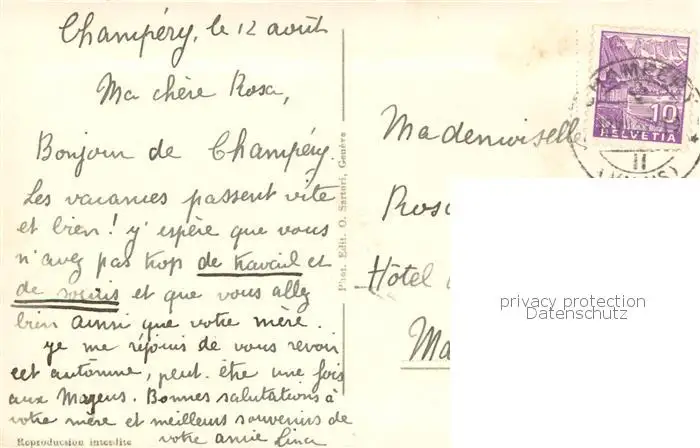 Champéry, le 12 août
Ma chère Rosa,
Bonjour de Champéry.
Les vacances passent vite
et bien! y' espère que vous
n'avez pas trop de travail et
de soucis et que vous allez
bien ainsi que votre mère.
ye me réjouis de vous revoir
cet automne, peut-être une fois
aux Mayens. Bonnes salutations à
votre mère et meilleurs souvenirs de
votre amie Lina
Reproduction interdite
Phot. Edit. O. Sartori, Genève
Mademoiselle
Rosa
Hôtel
Ma
CHAMPÉRY
10
HELVETIA
II
privacy protection
Datenschutz